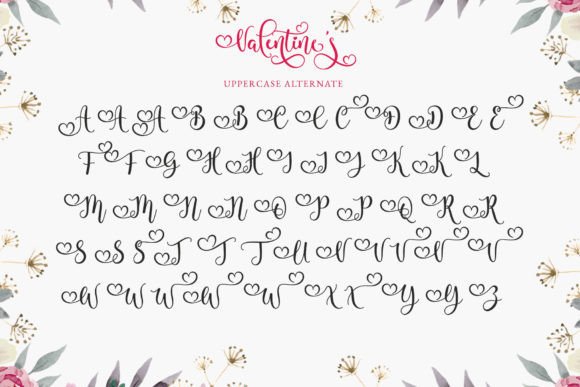 Valentine's
UPPERCASE ALTERNATE
A A A B B C C C D D E E
F F G H H I I J K K L
M M N N O P P Q R R
S S S T T T U U V V V V
W W W W W X X Y Y Z